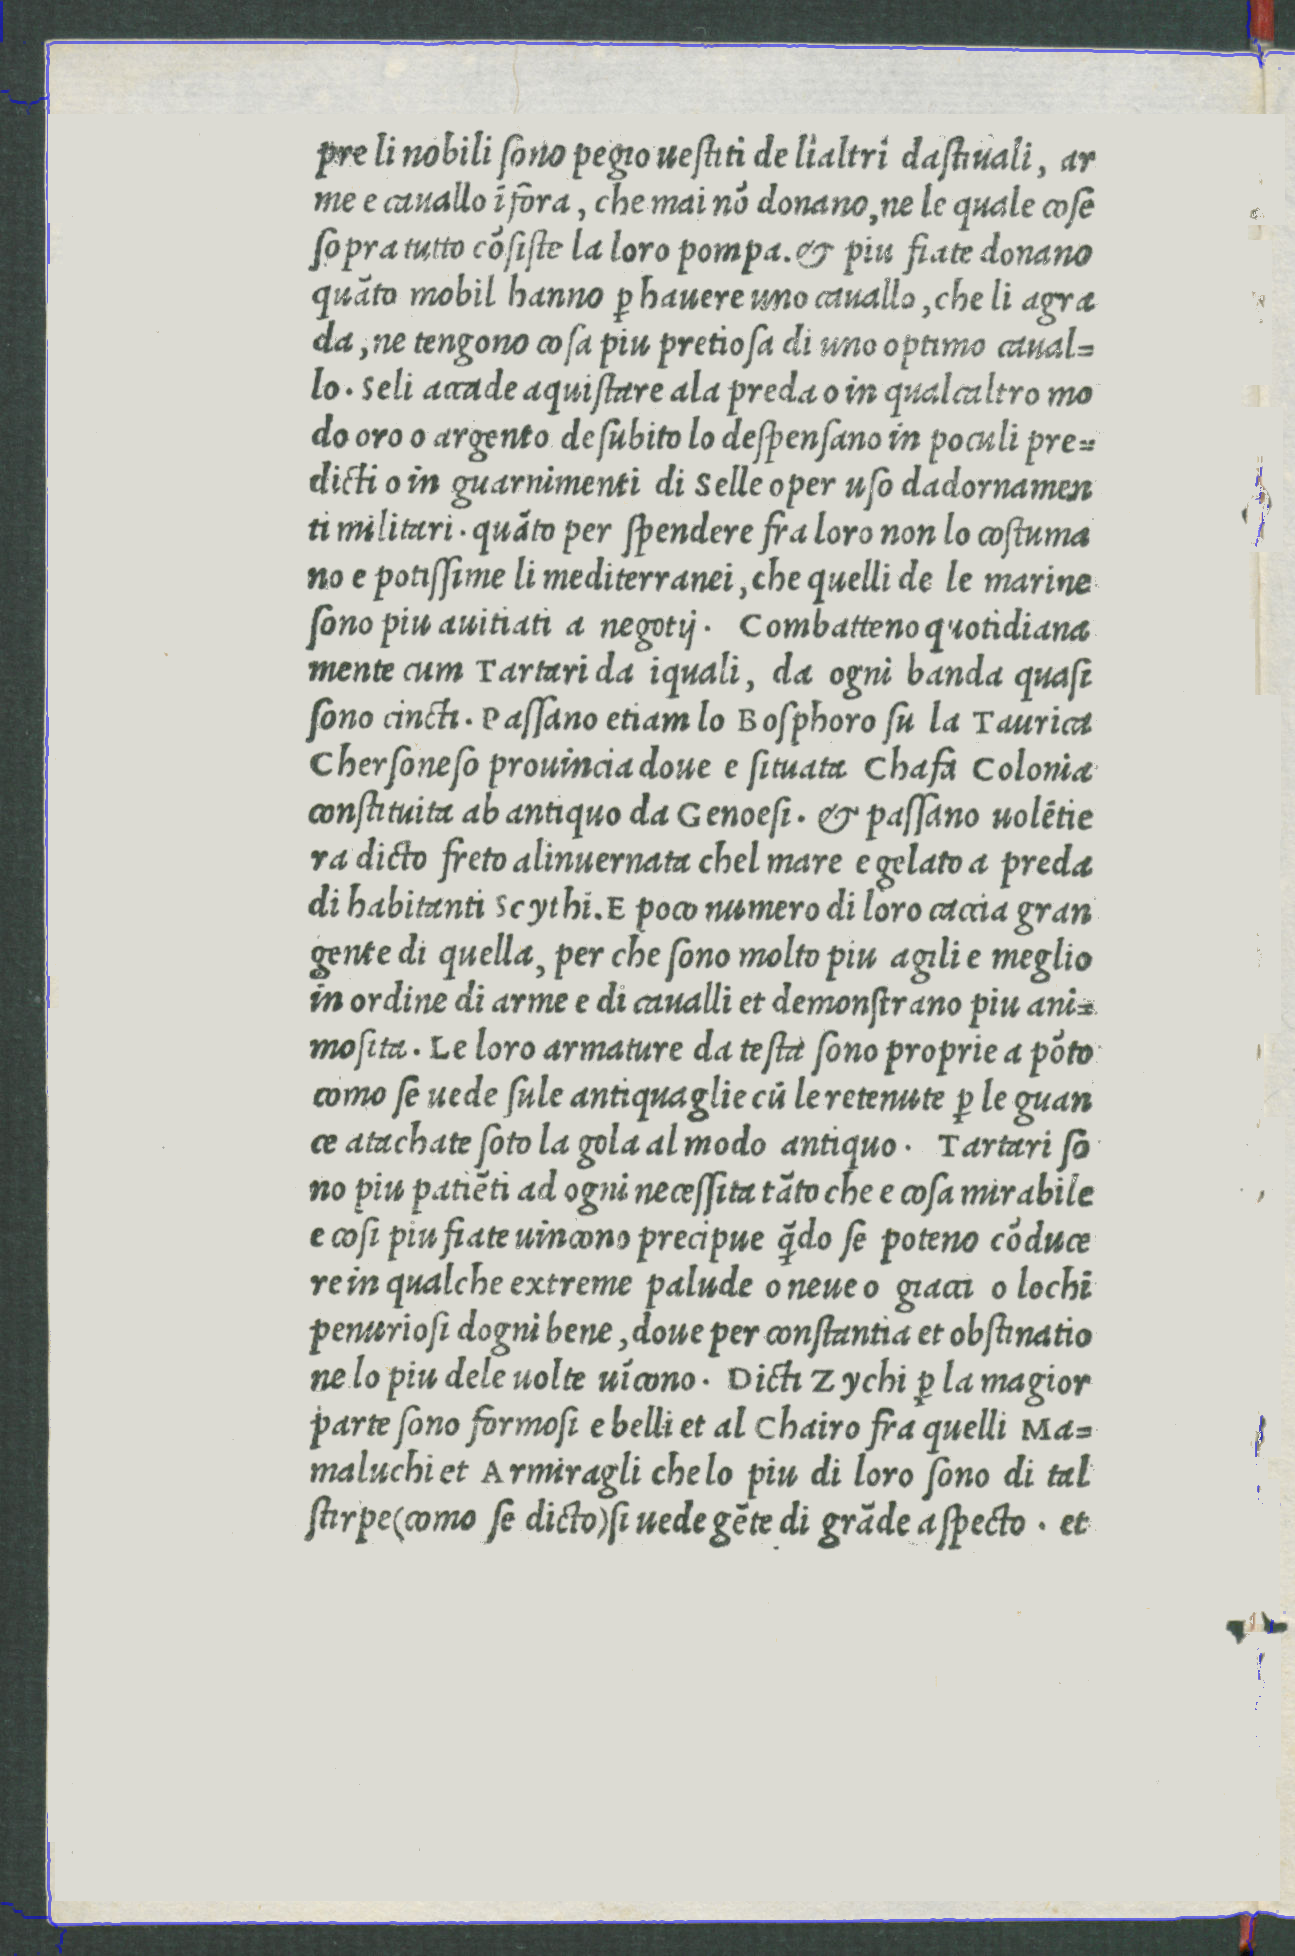 pre li nobili ſono pegio ueſtiti de lialtri daſtiuali, ar
me e cauallo ĩ fõra, che mai nõ donano, ne le quale coſe
ſopra tutto cõſiſte la loro pompa. & piu fiate donano
quãto mobil hanno ꝑ hauere uno cauallo, che li agra
da, ne tengono coſa piu pretioſa di uno optimo caual=
lo. Seli accade aquiſtare ala preda o in qualcaltro mo
do oro o argento deſubito lo deſpenſano in poculi pre=
dicti o in guarnimenti di Selle o per uſo dadornamen
ti militari. quãto per ſpendere fra loro non lo coſtuma
no e potiſſime li mediterranei, che quelli de le marine
ſono piu auitiati a negotij. Combatteno quotidiana
mente cum Tartari da iquali, da ogni banda quaſi
ſono cincti. Paſſano etiam lo Boſphoro ſu la Taurica
Cherſoneſo prouincia doue e ſituata Chafa Colonia
conſtituita ab antiquo da Genoeſi. & paſſano uolẽtie
ra dicto freto alinuernata chel mare e gelato a preda
di habitanti Scythi. E poco numero di loro caccia gran
gente di quella, per che ſono molto piu agili e meglio
in ordine di arme e di caualli et demonſtrano piu ani=
moſita. Le loro armature da teſta ſono proprie a põto
como ſe uede ſule antiquaglie cũ le retenute ꝑ le guan
ce atachate ſoto la gola al modo antiquo. Tartari ſo
no piu patiẽti ad ogni neceſſita tãto che e coſa mirabile
e coſi piu fiate uincono precipue q̃do ſe poteno cõduce
re in qualche extreme palude o neue o giacci o lochi
penurioſi dogni bene, doue per conſtantia et obſtinatio
ne lo piu dele uolte uĩcono. Dicti Zychi ꝑ la magior
parte ſono formoſi e belli et al Chairo fra quelli Ma=
maluchi et Armiragli che lo piu di loro ſono di tal
ſtirpe (como ſe dicto) ſi uede gẽte di grãde aſpecto. et